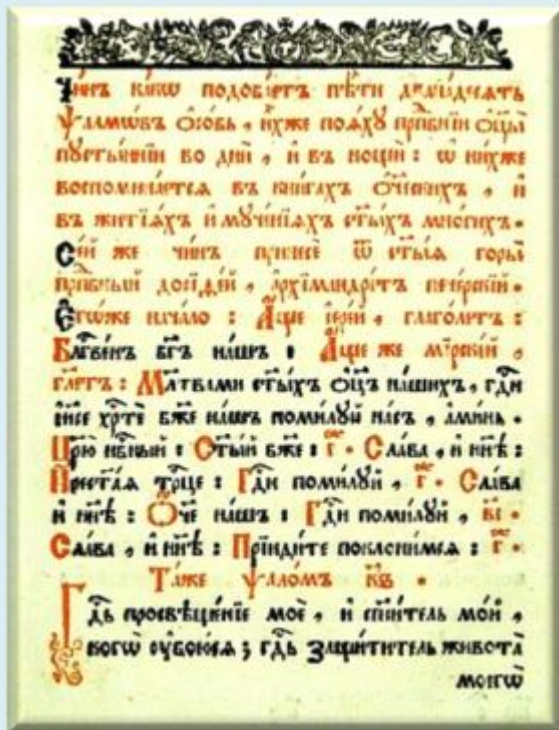 Чи́нъ ка́кѡ подоба́етъ пѣ́ти двана́десять
ѱалмѡ́въ ѻ҆со́бь , и҆́хже поѧ́ху прпⷣбнїи ѻ҆ц҃ы̀
пꙋсты́ннїи во днѝ , и҆ въ нощѝ : ѡ҆ ни́хже
воспомина́етсѧ въ кни́гахъ ѻ҆те́ческихъ , и҆
въ житїѧ́хъ и҆ мꙋче́нїихъ ст҃ы́хъ мно́гихъ .
Се́й же чи́нъ принесѐ ѿ ст҃ы́ѧ горы̀
прпⷣбный досїѳе́й , а҆рхїмандри́тъ пече́рскїй .
Є҆гѡ́же нача́ло : А҆́ще і҆ере́й , глаго́летъ :
Блгⷭ҇ве́нъ бг҃ъ на́шъ : А҆́ще же мїрскі́й ,
гл҃етъ : Мл҃твами ст҃ы́хъ ѻ҆ц҃ъ на́шихъ , гдⷭ҇и
і҆и҃се хрⷭ҇тѐ бж҃е на́шъ поми́лꙋй на́съ , а҆ми́нь .
Цр҃ю̀ нбⷭ҇ный : Ст҃ы́й бж҃е : г҃ . Сла́ва , и҆ нн҃ѣ :
Прест҃а́ѧ трⷪ҇це : Гдⷭ҇и поми́лꙋй , г҃ . Сла́ва
и҆ нн҃ѣ : Ѻ҆́ч҃е на́шъ : Гдⷭ҇и поми́лꙋй , в҃і .
Сла́ва , и҆ нн҃ѣ : Прїиди́те поклони́мсѧ : г҃ .
Та́же ѱало́мъ к҃ѕ .
Гдⷭ҇ь просвѣще́нїе моѐ , и҆ сп҃си́тель мо́й ,
когѡ̀ ᲂу҆бою́сѧ ; гдⷭ҇ь защити́тель живота̀
моегѡ̀